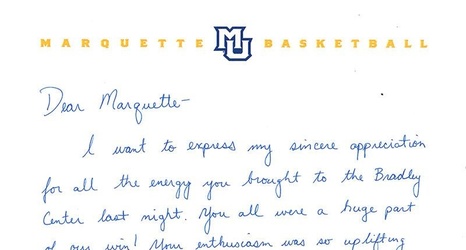 MARQUETTE MU BASKETBALL
Dear Marquette-
I want to express my sincere appreciation
for all the energy you brought to the Bradley
Center last night. You all were a huge part
of our win! Your enthusiasm was so uplifting